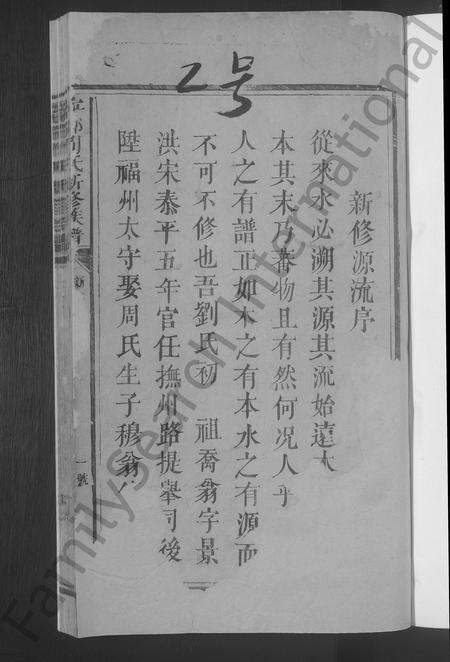 2号
新修源流序
從來水必溯其源其流始遠木
本其末乃蕃物且有然何况人乎
人之有譜正如木之有本水之有源而
不可不修也吾劉氏初 祖喬翁字景
洪宋泰平五年官任撫州路提舉司後
陞福州太守娶周氏生子穆翁
氏新修族譜
一號
FamilySearch International